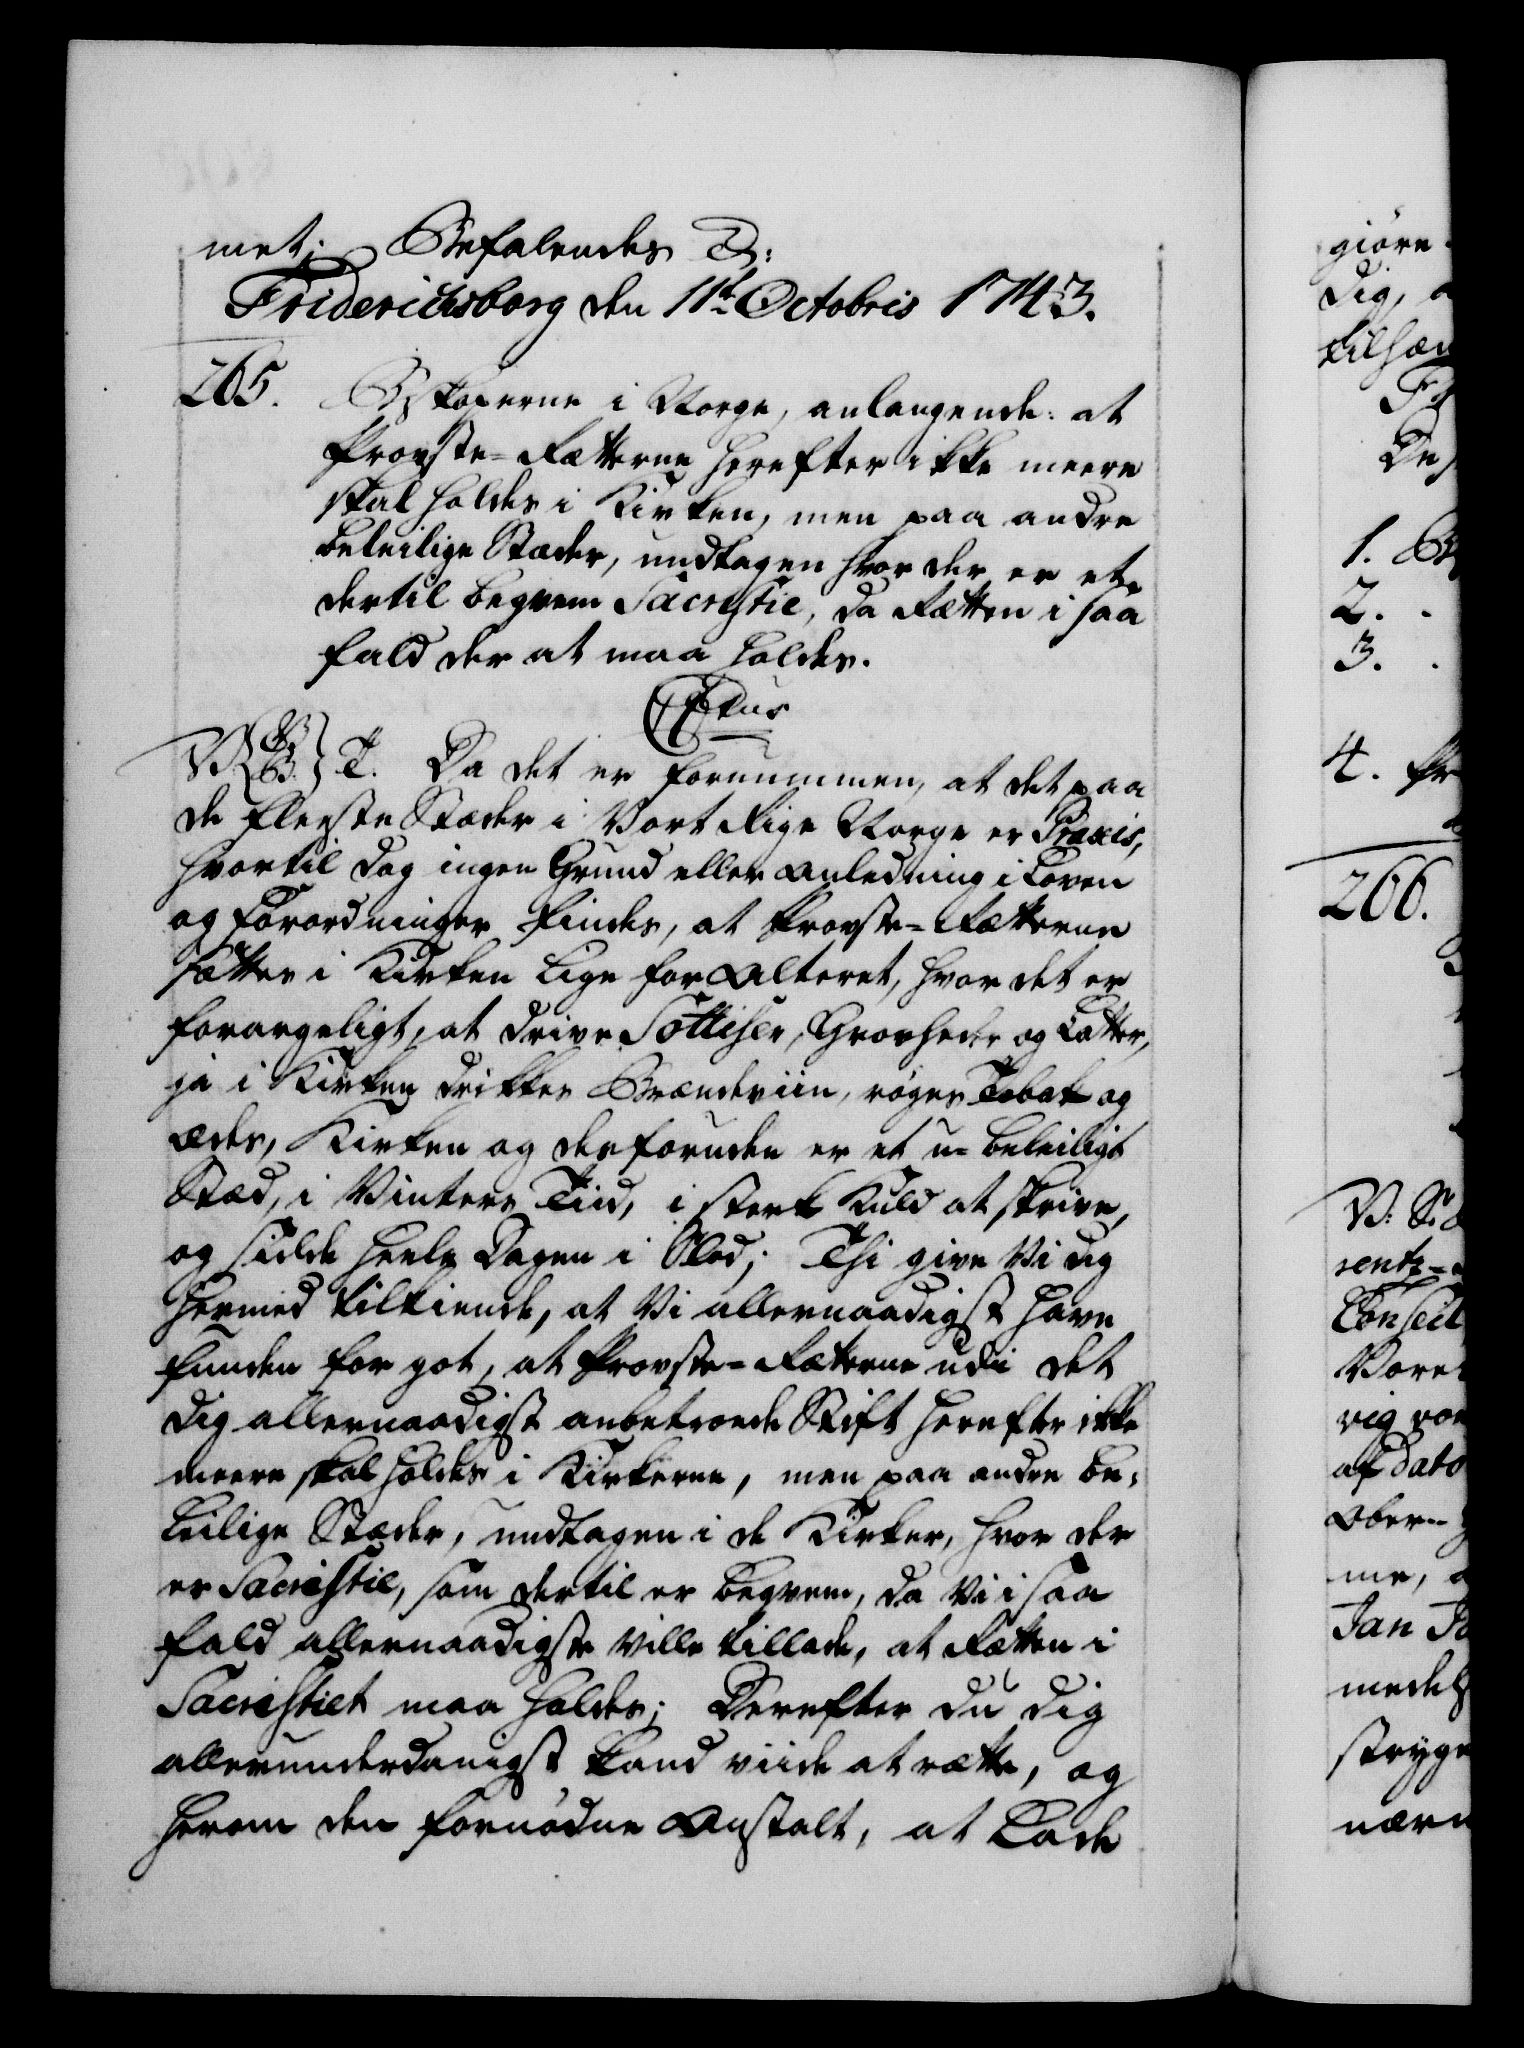 met; Befalendes D:
Friderichsborg den 11te Octobris 1743.
265. Biskoperne i Norge, anlangende: at
Provste-Rætterne herefter ikke meere
skal holdes i Kirken, men paa andre
beleilige Stæder, undtagen hvor der er et
dertil beqvem Sacristie, da Rætten i saa
fald der at maa holdes.
V. T. Da det er fornummen, at det paa
de fleeste Stæder i Vort Rige Norge er Praxis,
hvortil dog ingen Grund eller Anledning i Loven
og Forordninger findes, at Provste-Rætterne
sættes i Kirken lige for Alteret, hvor det er
forargeligt, at drive Sottiser, Grovheder og Latter,
ja i Kirken drikkes Brændeviin, røges Tobak og
ædes, Kirken og desforuden er et u-beleiligt
Stæd, i Vinters Tiid, i sterk Kuld at skrive,
og sidde heele Dagen i Slod; Thi give Vi dig
hermed tilkiende, at Vi allernaadigst have
funden for got, at Provste-Rætterne udi det
dig allernaadigst anbetroede Stift herefter ikke
meere skal holdes i Kirkerne, men paa andre be-
leilige Stæder, undtagen i de Kirker, hvor der
er Sacristie, som dertil er beqvem, da Vi i saa
fald allernaadigste ville tillade, at Rætten i
Sacristiet maa holdes; Derefter du dig
allerunderdanigst kand viide at rætte, og
herom den fornødne Anstalt, at lade
giøre
dig, a
tilhæn
1. B
2.
3.
4. Pr
266.
sentz-
Conseil
Vores
vig vor
af dato
Ober-
me, a
Jan
medels
stryge
nærv